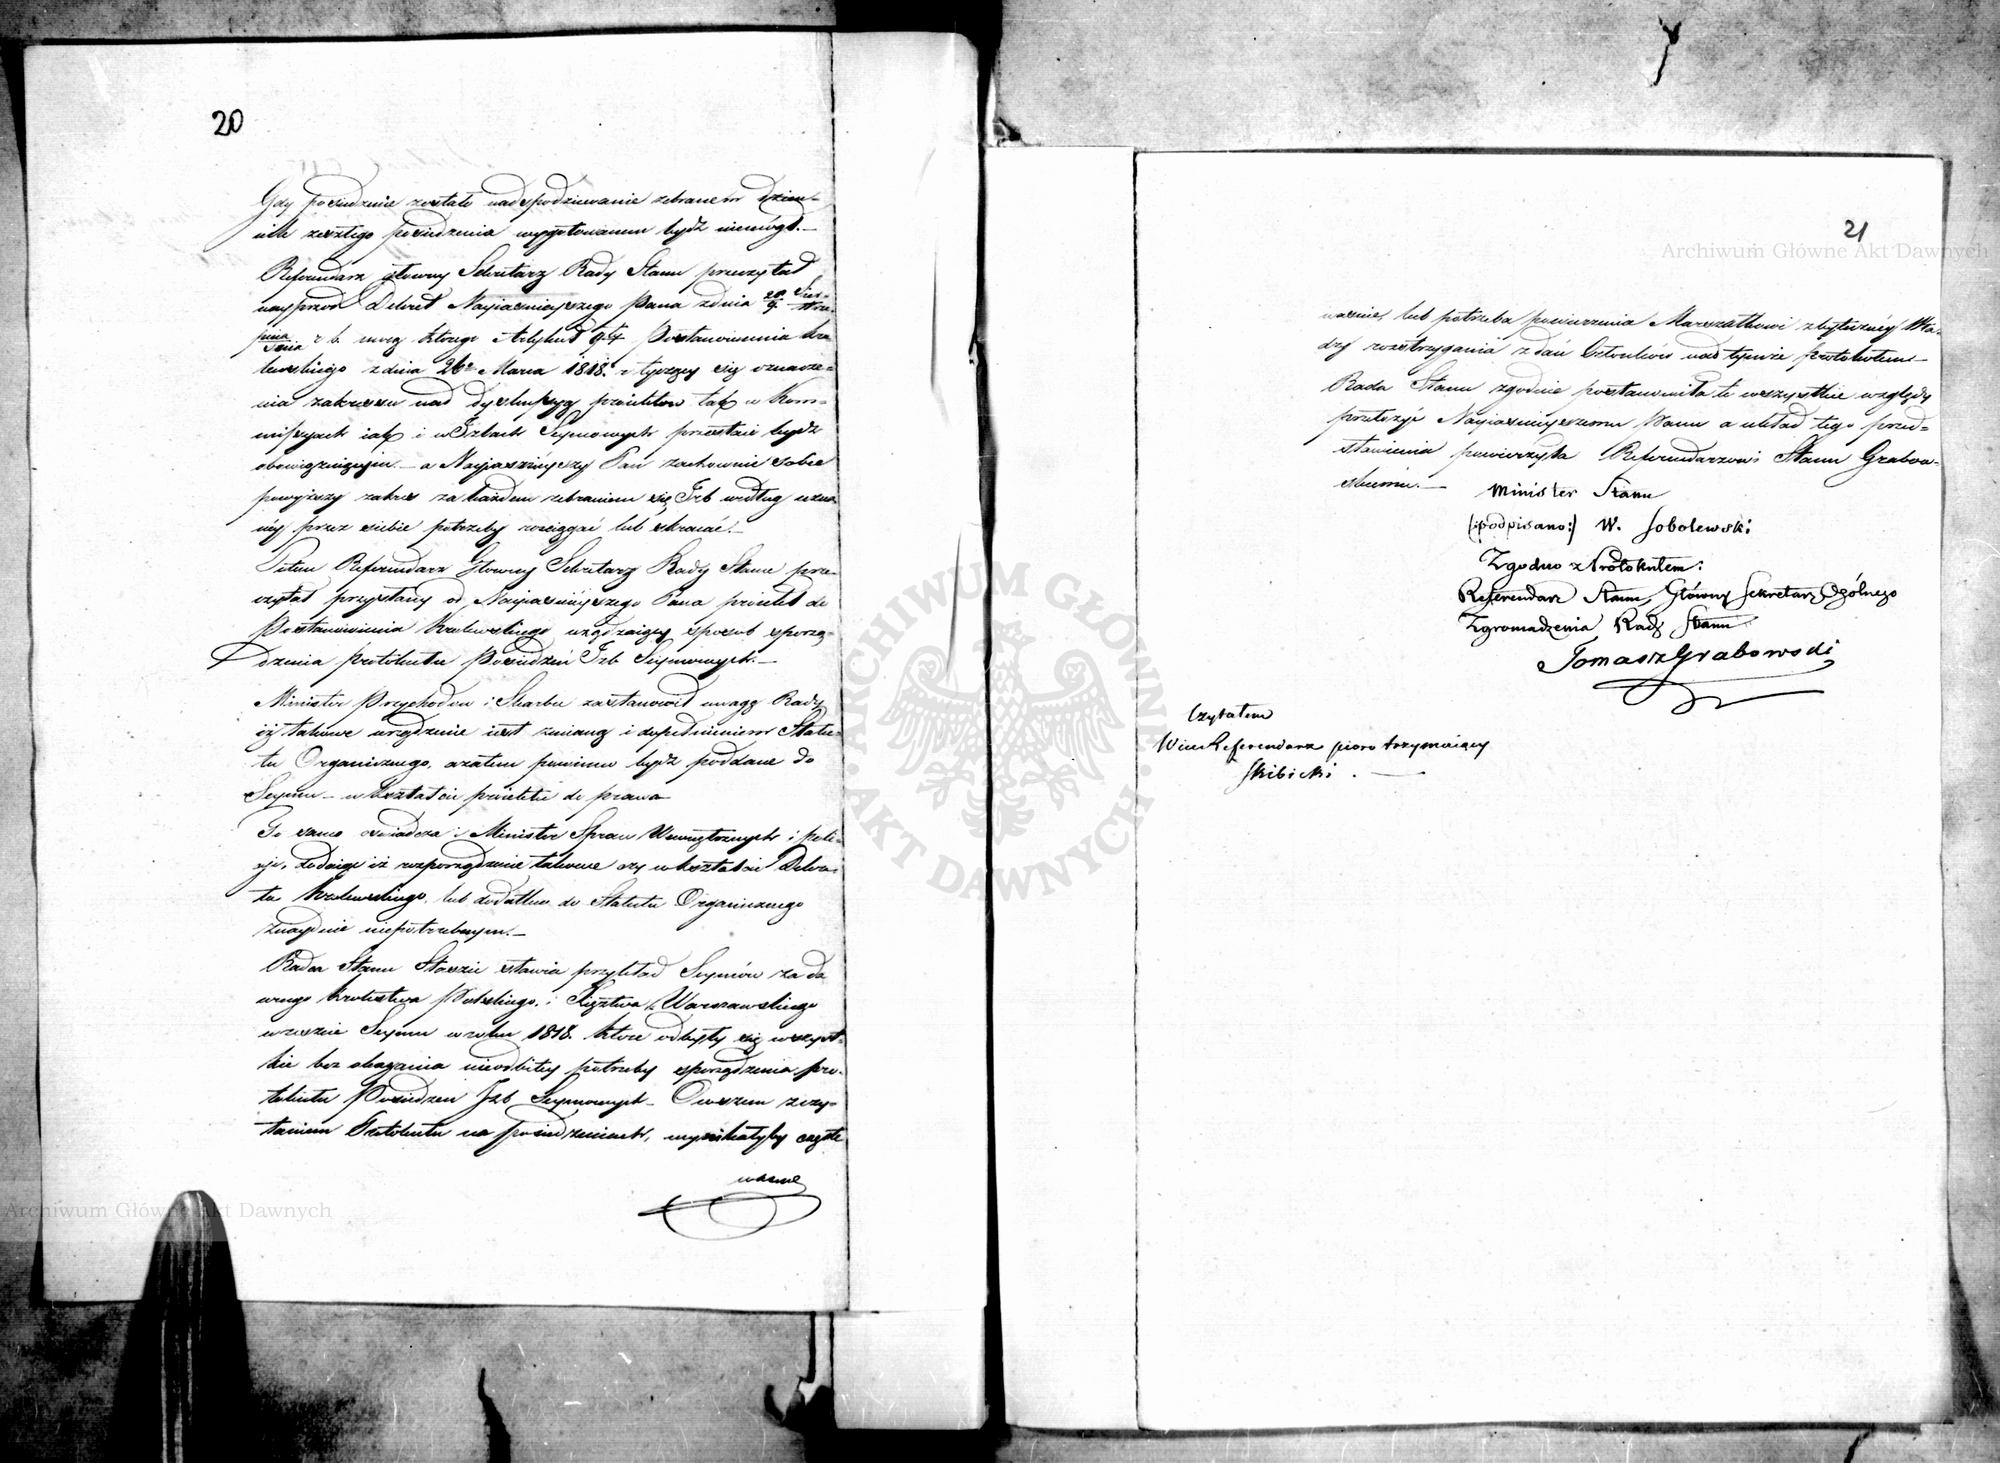 20
Gdy posiedzenie zostało nadspodziewanie zebranem dzien-
nik zeszłego posiedzenia wygotowanem bydź niemógł.—
Referendarz główny Sekretarz Rady Stanu przeczytał
nayprzod Dekret Nayiaśnieyszego Pana z dnia
r. b. mocą którego Artykuł Postanowienia Kro-
lewskiego z dnia 26 Marca 1818. r tyczący się oznacze-
nia zakresu nad dyskussyą proiektow tak w Kom-
missyach iak i w Izbach Seymowych przestaie bydź
obowięzuiącym — a Nayiaśnieyszy Pan zachownie sobie
powyższy zakres za każdem zebraniem się Izb według uzna-
ney przez siebie potrzeby rosciągać lub skracać.—
Potem Referendarz Głowny Sekretarz Rady Stanu prze-
czytał przysłany od Nayiaśnieyszego Pana proiekt do
Postanowienia Krolewskiego urządzaiący sposob sporzą-
dzenia protokułu Posiedzeń Izb Seymowych.—
Minister Przychodow i Skarbu zastanowił uwagę Rady
iż takowe urządzenie iest zmianą i dopełnieniem Statu-
tu Organicznego, a zatem powinno bydź poddane do
Seymu — w kształcie proiektu do prawa
To samo oswiadcza i Minister Spraw Wewnętrznych i poli-
cyi, dodaiąc iż rozporządzenie takowe czy w kształcie Dekre-
tu Krolewskiego, lub dodatku do Statutu Organicznego
znayduie niepotrzebnym.—
Radca Stanu Staszic stawia przykład Seymów za da
wnego Krolestwa Polskiego, i Xięztwa Warszawskiego
wreszcie Seymu w roku 1818. ktore odbyły się wszyst-
kie bez okazania nieodbitey potrzeby sporządzenia pro-
tokułu Posiedzen Izb Seymowych — Owszem z czy-
taniem Protokułu na posiedzeniach, wynikałyby częste
waśnie
21
waśnie, lub potrzeba powierzenia Marszałkowi zbyteczney Wła-
dzy rozstrzygania zdań Członków nad tymże protokułem —
Rada Stanu zgodnie postanowiła te wszystkie względy
przełożyć Nayiaśnieyszemu Panu a układ tego przed-
stawienia powierzyła Referendarzowi Stanu Grabow-
skiemu.—
Minister Stanu
(podpisano:) W. Sobolewski
Zgodno z Protokułem:
Referendarz Stanu, Główny Sekretarz Ogólnego
Zgromadzenia Rady Stanu
Tomasz Grabowski
Czytałem
Wice Referendarz pioro trzymaiący
Skibicki.—
Archiwum Główne Akt Dawnych
Archiwum Główne Akt Dawnych
ARCHIWUM GŁÓWNE AKT DAWNYCH